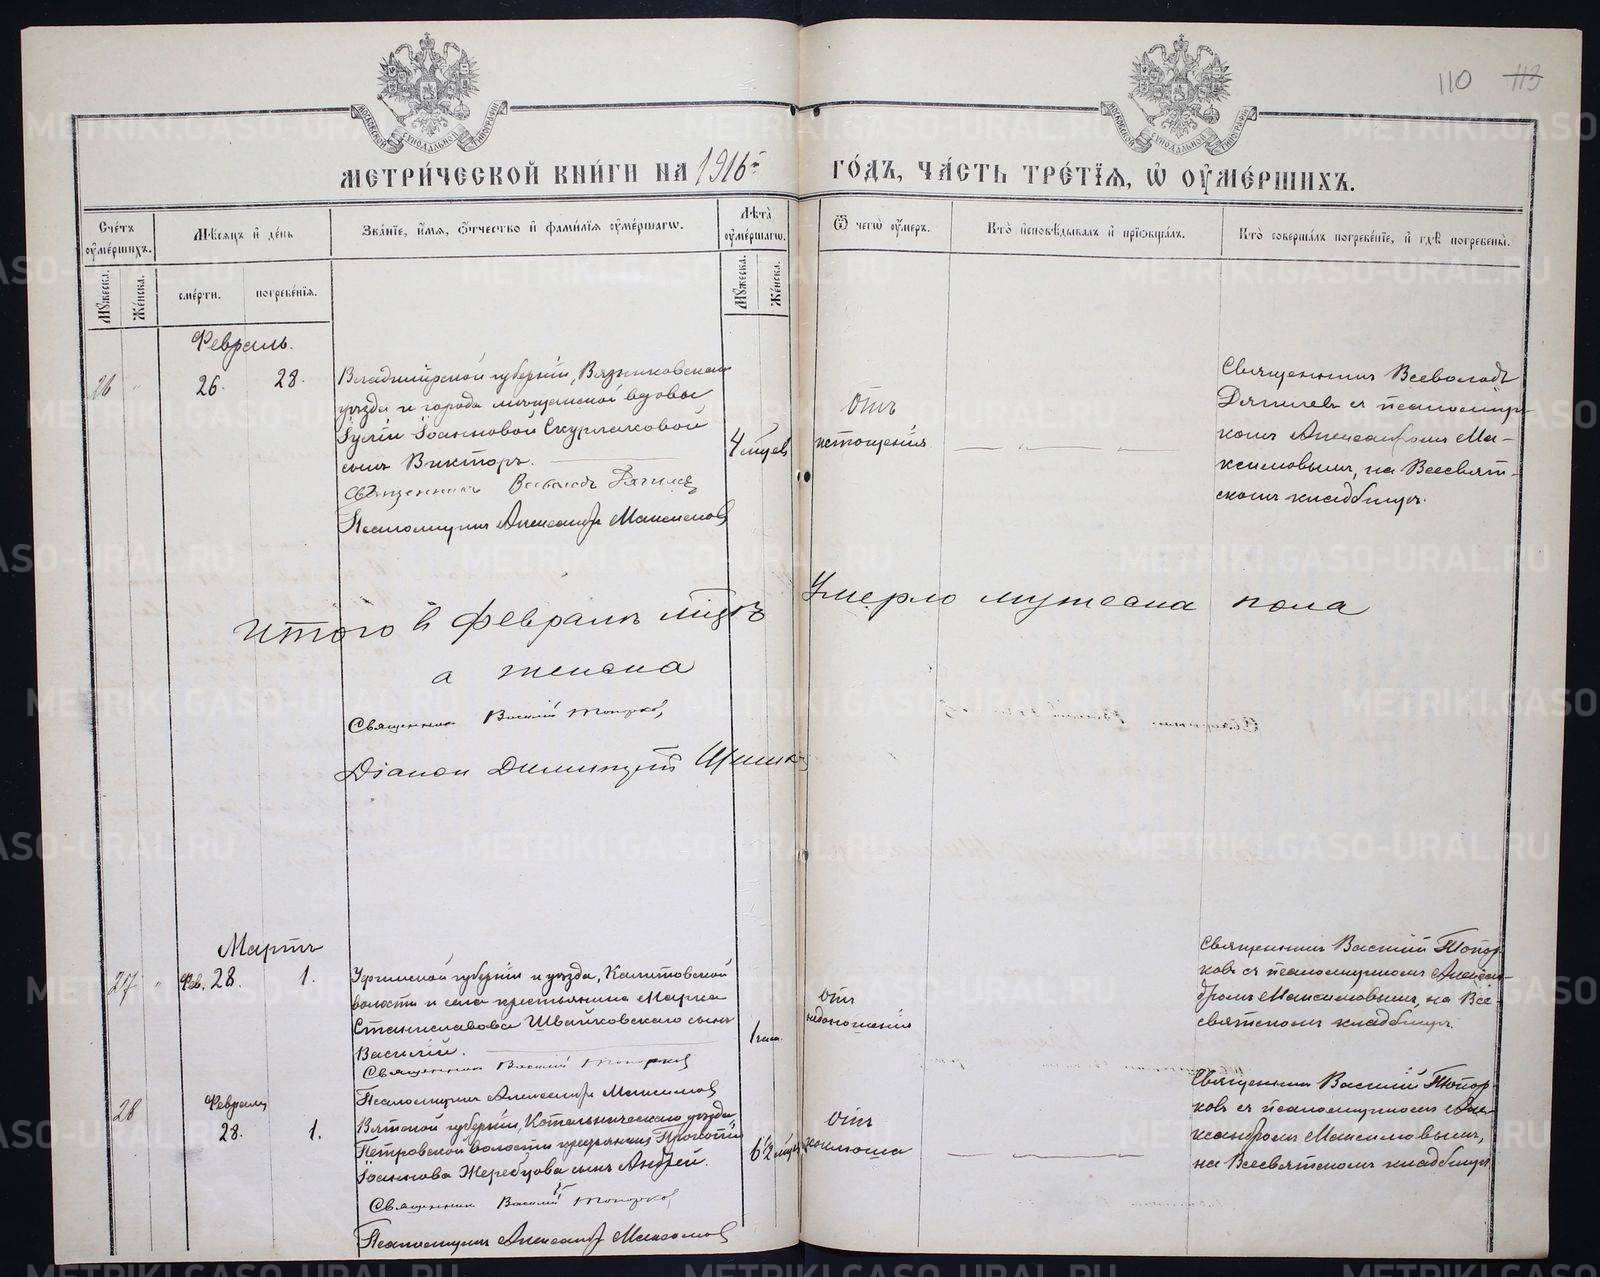 110 113
МОСКОВСКОЙ СѴНОДАЛЬНОЙ ТИПОГРАФІИ
МОСКОВСКОЙ СѴНОДАЛЬНОЙ ТИПОГРАФІИ
МЕТРИ́ЧЕСКОЙ КНИ́ГИ НА 1916й ГО́ДЪ, ЧА́СТЬ ТРЕ́ТІѦ, Ѽ ОУМЕ́РШИХЪ.
Сче́тъ оуме́ршихъ.
Мѣ́сѧцъ и де́нь
Зва́нїе, и́мѧ, ѻ҆́тчество и фами́лїѧ оуме́ршагѡ.
Лѣта̀ оуме́ршагѡ.
Ѿ чегѡ̀ оу́меръ.
Кто̀ исповѣ́дывалъ и прїѡбща́лъ.
Кто̀ соверша́лъ погребе́нїе, и гдѣ̀ погребены̀.
Мꙋ́жеска.
Же́нска.
сме́рти.
погребе́нїѧ.
Мꙋ́жеска.
Же́нска.
Февраль.
26 " 26. 28.
Владимірской губерніи, Вязниковскаго
уѣзда и города мѣщанской вдовы
Іуліи Іоанновой Скурлаковой
сынъ Викторъ.
Священникъ Всеволодъ
Псаломщикъ Александръ Максимовъ
4 мѣсяц
отъ
истощенія
Священникъ Всеволодъ
съ псаломщи-
комъ Александромъ Ма-
ксимовымъ, на Всесвят-
скомъ кладбищѣ.
Итого в Февралѣ мѣсяцѣ Умерло мужеска пола
а женска
Священник Василій Топорков
Діакон Димитрій
Мартъ
27 " Фев. 28. 1.
Уфимской губерніи и уѣзда,
волости и села крестьянина Марка
Станиславова Швайковскаго сынъ
Василій.
Священник Василій Топорков
Псаломщикъ Александръ Максимовъ
1 часа.
отъ
недоношенія
Священникъ Василій Топор-
ковъ съ псаломщикомъ Алексан-
дромъ Максимовымъ, на Все-
святскомъ кладбищѣ.
28
Февраля
28. 1.
Вятской губерніи, Котельническаго уѣзда
Петровской волости крестьянина Прокопія
Іоаннова Жеребцова сынъ Андрей.
Священник Василій Топорков
Псаломщикъ Александръ Максимовъ
6½ мѣсяц
отъ
коклюша
Священникъ Василій Топор-
ковъ съ псаломщикомъ Але-
ксандромъ Максимовымъ,
на Всесвятскомъ кладбищѣ
METRIKI.GASO-URAL.RU